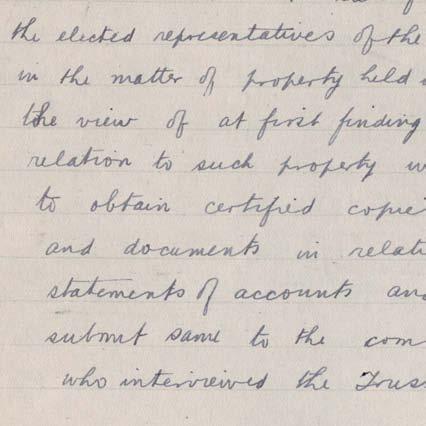 the elected representatives of the
in the matter of property held
the view of at first finding
relation to such property
to obtain certified
and documents in
statements of accounts
submit same to the
who interviewed the